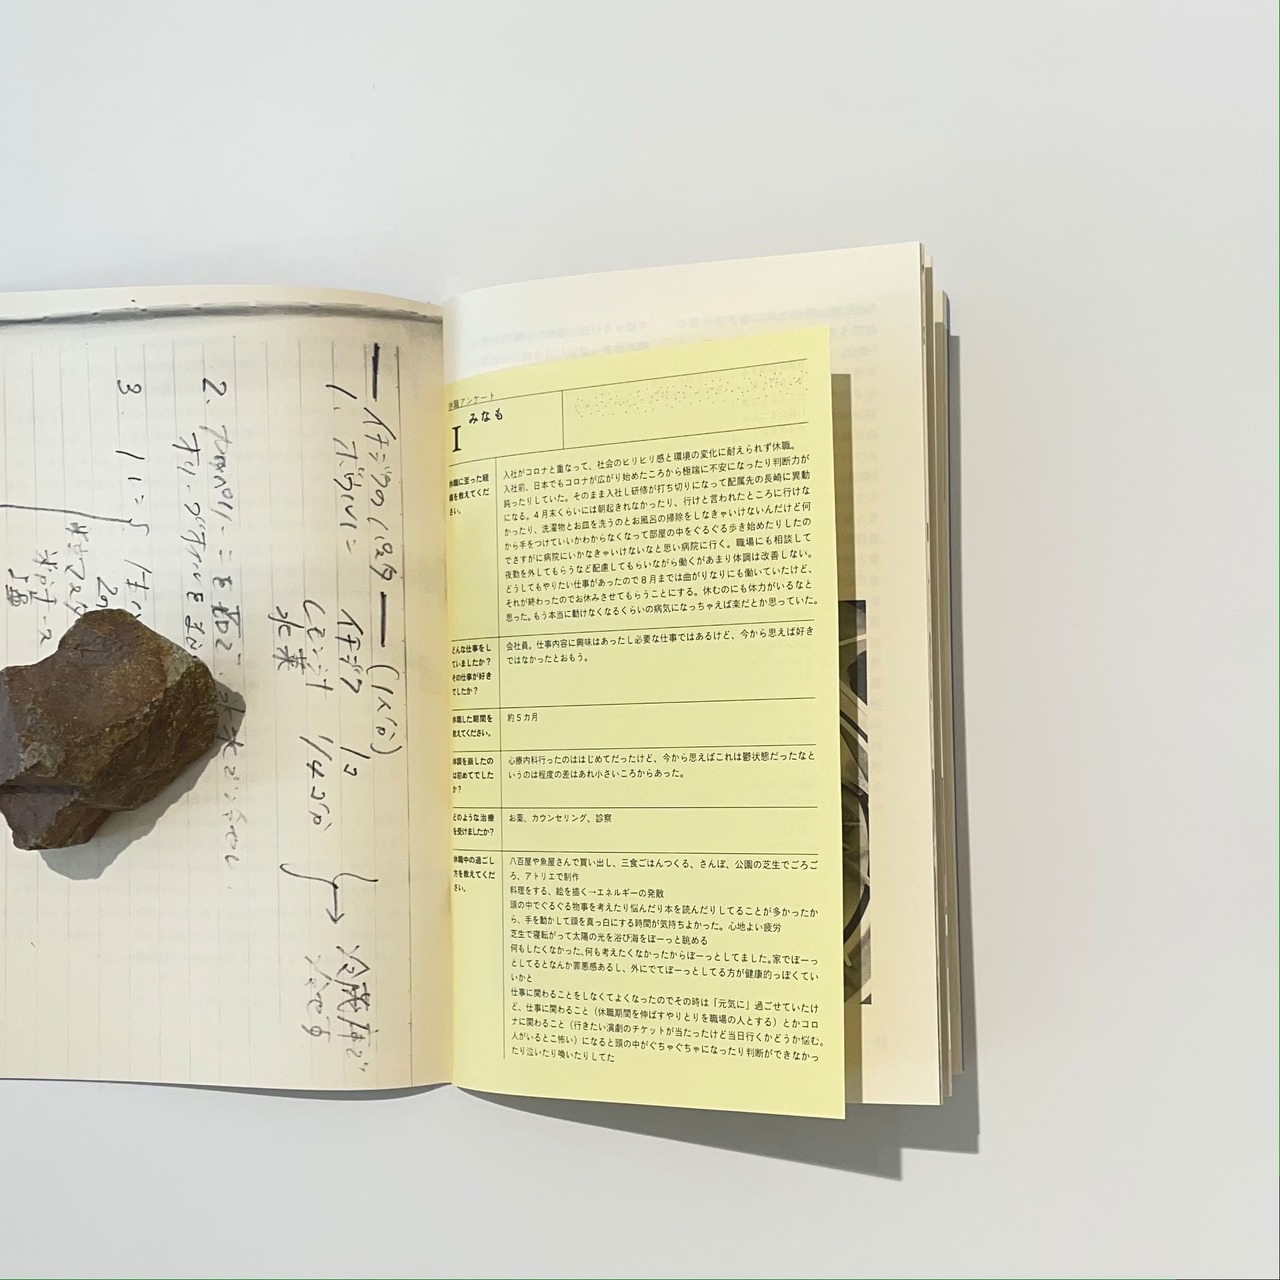 休職アンケート
1 みなも
休職に至った経
緯を教えてくだ
さい。
入社がコロナと重なって、社会のピリピリ感と環境の変化に耐えられず休職。
入社前、日本でもコロナが広がり始めたころから極端に不安になったり判断力が
鈍ったりしていた。そのまま入社し研修が打ち切りになって配属先の長崎に異動
になる。4月末くらいには朝起きれなかったり、行けと言われたところに行けな
かったり、洗濯物とお皿を洗うのとお風呂の掃除をしなきゃいけないんだけど何
から手をつけていいかわからなくなって部屋の中をぐるぐる歩き始めたりしたの
でさすがに病院にいかなきゃいけないなと思い病院に行く。職場にも相談して
夜勤を外してもらうなど配慮してもらいながら働くがあまり体調は改善しない。
どうしてもやりたい仕事があったので8月までは曲がりなりにも働いていたけど、
それが終わったのでお休みさせてもらうことにする。休むのにも体力がいるなと
思った。もう本当に動けなくなるくらいの病気になっちゃえば楽だとか思っていた。
どんな仕事をし
ていましたか?
その仕事が好き
でしたか?
会社員。仕事内容に興味はあったし必要な仕事ではあるけど、今から思えば好き
ではなかったとおもう。
休職した期間を
教えてください。
約5カ月
体調を崩したの
は初めてでした
か?
心療内科行ったのははじめてだったけど、今から思えばこれは鬱状態だったなと
いうのは程度の差はあれ小さいころからあった。
どのような治療
を受けましたか?
お薬、カウンセリング、診察
休職中の過ごし
方を教えてくだ
さい。
八百屋や魚屋さんで買い出し、三食ごはんつくる、さんぽ、公園の芝生でごろご
ろ、アトリエで制作
料理をする、絵を描く→エネルギーの発散
頭の中でぐるぐる物事を考えたり悩んだり本を読んだりしてることが多かったか
ら、手を動かして頭を真っ白にする時間が気持ちよかった。心地よい疲労
芝生で寝転がって太陽の光を浴び海をぼーっと眺める
何もしたくなかった、何も考えたくなかったからぼーっとしてました。家でぼーっ
としてるとなんか罪悪感あるし、外にでてぼーっとしてる方が健康的っぽくてい
いかと
仕事に関わることをしなくてよくなったのでその時は「元気に」過ごせていたけ
ど、仕事に関わること(休職期間を伸ばすやりとりを職場の人とする)とかコロ
ナに関わること(行きたい演劇のチケットが当たったけど当日行くかどうか悩む。
人がいるとこ怖い)になると頭の中がぐちゃぐちゃになったり判断ができなかっ
たり泣いたり喚いたりしてた